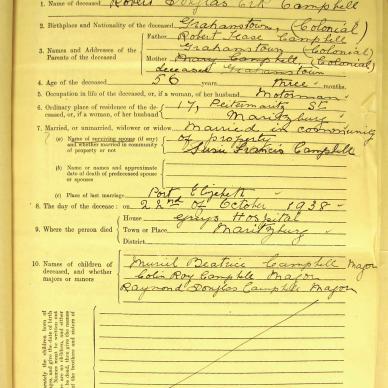 1. Name of deceased Robert Douglas Campbell
2. Birthplace and Nationality of the deceased Grahamstown, (Colonial)
Father Robert Pease Campbell
3. Names and Addresses of the Parents of the deceased
Grahamstown (Colonial)
Mother Mary Campbell (Colonial)
deceased Grahamstown
4. Age of the deceased 56 years three months
5. Occupation in life of the deceased, or, if a woman, of her husband Motorman
6. Ordinary place of residence of the deceased, or, if a woman, of her husband 17, Pietermaritz St.
Maritzburg
7. Married, or unmarried, widower or widow Married in community
of property
(a) Name of surviving spouse (if any) and whether married in community of property or not
Susie Francis Campbell
(b) Name or names and approximate date of death of predeceased spouse or spouses
(c) Place of last marriage Port Elizabeth
8. The day of the decease: on 22nd of October 1938
9. Where the person died
House Greys Hospital
Town or Place, Maritzburg
District
10. Names of children of deceased, and whether majors or minors
Muriel Beatrice Campbell Major
Colin Roy Campbell Major
Raymond Douglas Campbell Major